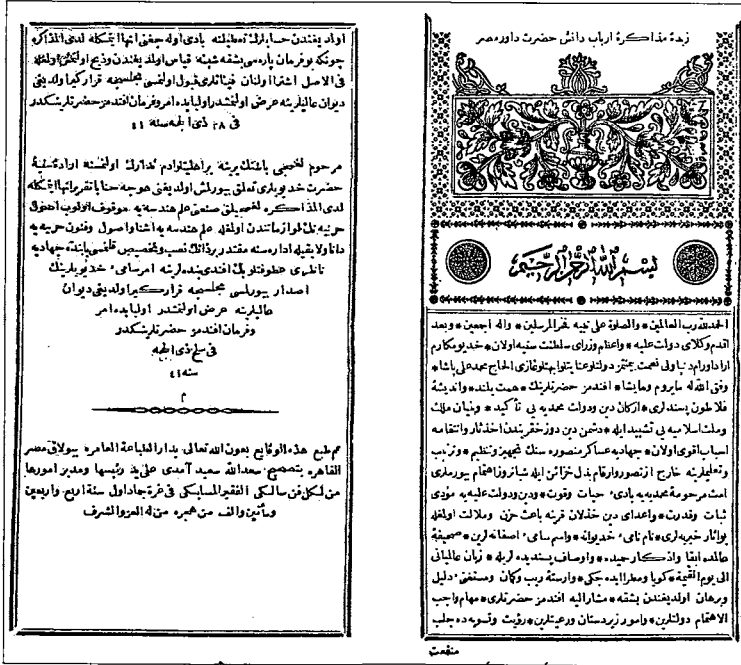 زبدهٔ مذاکرهٔ ارباب دانش حضرت داور مصر
بسم الله الرحمن الرحیم
الحمدلله رب العالمین * والصلوة علی نبیه فخر المرسلین * واله اجمعین * وبعد
اقدم وکلای دولت علیه * واعظم وزرای سلطنت سنیه اولان * خدیو مکارم
ارا داورام دنیا ولی نعمت بیمنتمز دولتلو عنایتلو ابهتلو غازی الحاج محمد علی پاشا *
وفق الله له مایروم ومایشا * افندمز حضرتلرینک * همت بلند * واندیشهٔ
فلاطون پسندلری * ارکان دین ودولت محمدیه یی تأکید * وبنیان ملک
وملت اسلامیه یی تشیید ایله * دشمن دین دوزخ قریندن اخذ ثار وانتقامه
اسباب اقوی اولان * جهادیه عساکر منصوره سنک تجهیز وتنظیم * وترتیب
وتعلیملرینه خارج از تصور وارقام بذل خزائن ایله شبانروز اهتمام بیورملری
امت مرحومهٔ محمدیه یه بادئ حیات وقوت * ودین ودولت علیه یه مؤدی
ثبات وقدرت * واعدای دین خذلان قرینه باعث حزن وملالت اولمغله
بو اثار خیریه لری * نام نامئ خدیوانه * واسم سامئ اصفانه لرین * صحیفهٔ
عالمده ابقا واذکار حمیده * واوصاف پسندیده لریله * زبان عالمیانی
الی یوم القیمة * کویا ومعطر ایده جکی * وارستهٔ ریب وکمان ومستغنئ دلیل
وبرهان اولدیغندن بشقه * مشارالیه افندمز حضرتلری * مهام واجب
الاهتمام دولتلرین * وامور زیردستان ورعیتلرین * رؤیت وتسویه ده جلب
منفعت
اولدیغندن حسابلرک تعطیلنه بادی اوله جغنی انها ایتمکله لدی المذاکره
چونکه بو فرمان پاره سی بشقه شیئه قیاس اولندیغندن
فی الاصل اشترا اولنان فیئاتلری قبول اولنمسی مجلسجه قرارکیر اولدیغی
دیوان عالیلرینه عرض اولنمشدر اولبابده امر وفرمان افندمز حضرتلرینکدر
فی ٢٨ ذی الحجه سنه ٤١
مرحوم لغمجی باشنک یرینه براهلیتلو ادم تدارک اولنمسنه ارادهٔ سنیهٔ
حضرت خدیویلری تعلق بیورلمش اولدیغنی هوجه حنا با تقریر انها ایتمکله
لدی المذاکره لغمجیلق صنعتی علم هندسه یه موقوف اولوب
حربیه نک لوازماتندن اولمغله علم هندسه یه اشنا واصول وفنون حربیه یه
دانا ولایقیله اداره سنه مقتدر بر ذاتک نصب وتخصیص قلنمسی بابنده جهادیه
ناظری عطوفتلو بک افندی بنده لرینه امر سامئ خدیویلرینک
اصدار بیورلمسی مجلسجه قرارکیر اولدیغی دیوان
عالیلرینه عرض اولنمشدر اولبابده امر
وفرمان افندمز حضرتلرینکدر
فی سلخ ذی الحجه
سنه ٤١
م
تم طبع هذه الوقایع بعون الله تعالی بدار الطباعة العامره ببولاق مصر
القاهره بتصحیح سعدالله سعید آمدی علی ید رئیسها ومدیر امورها
من لکل فن سالکی الفقیر المسابکی فی غرة جمادی اول سنة اربع واربعین
ومأتین والف من هجره من له العز والشرف